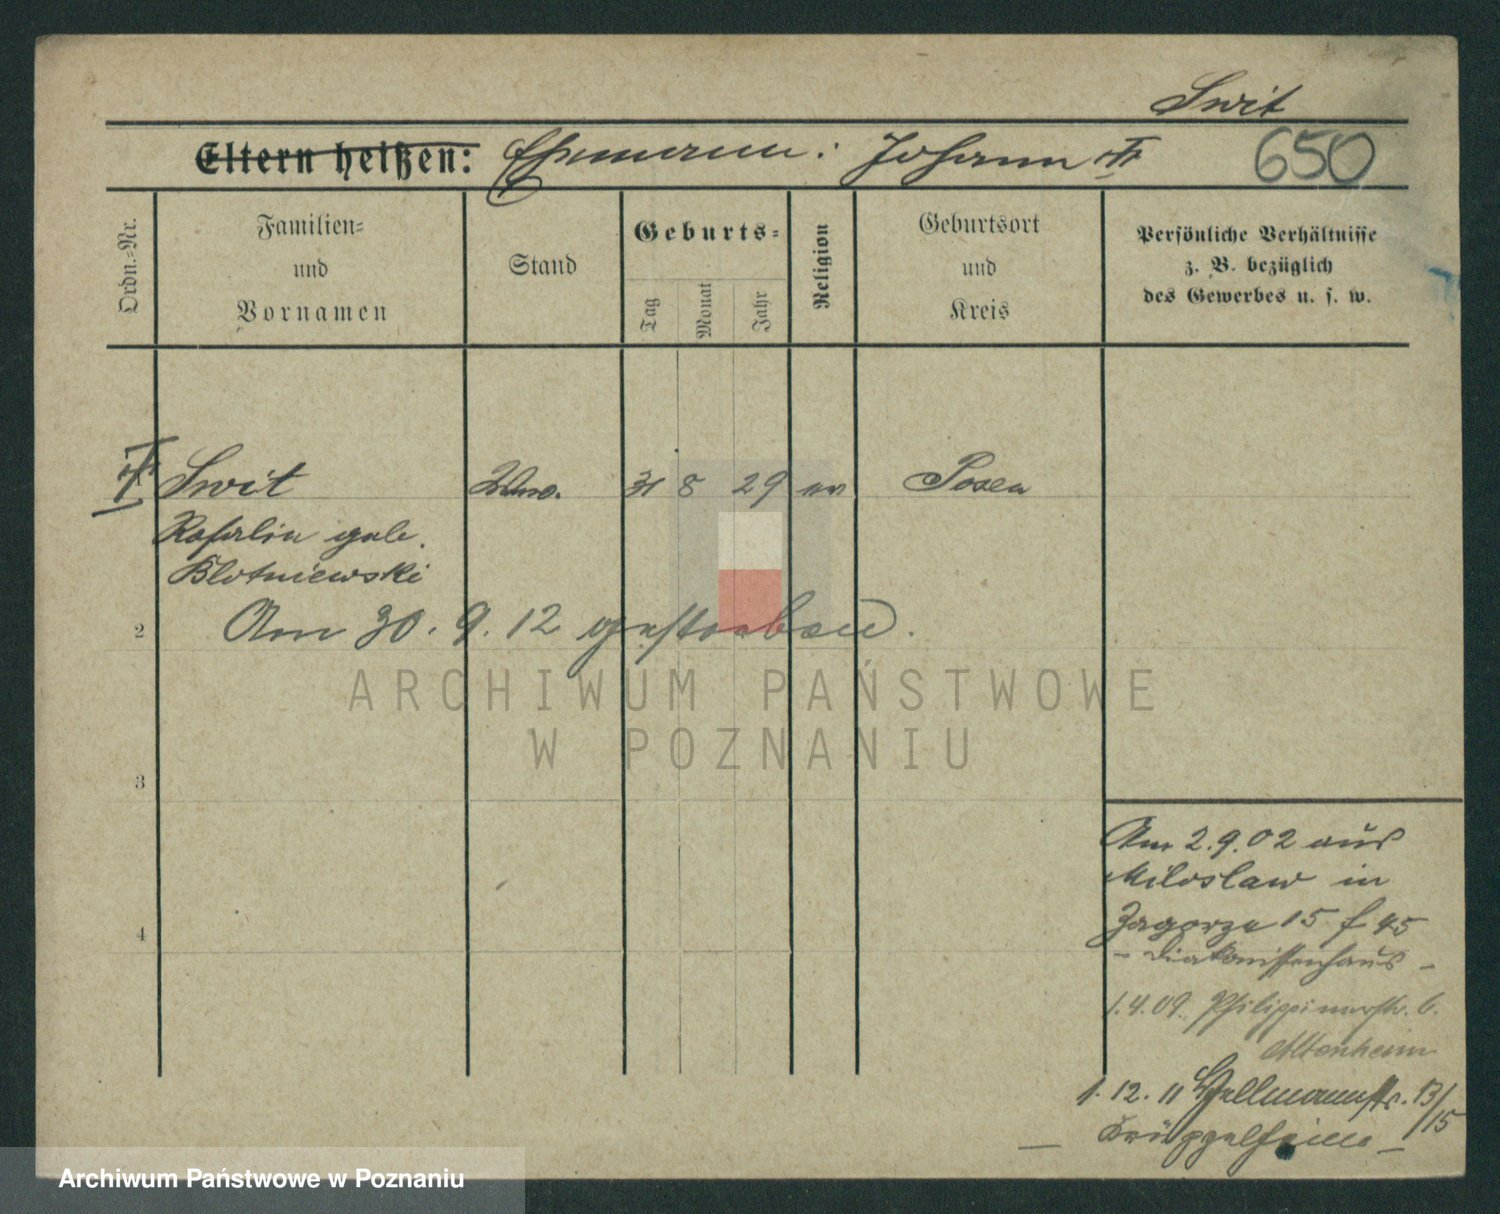 Swit
Eltern heißen: Ehemann: Johann †
650
Ordn.-Nr.
Familien- und Vornamen
Stand
Geburts-
Tag
Monat
Jahr
Religion
Geburtsort und Kreis
Persönliche Verhältnisse
z. B. bezüglich
des Gewerbes u. s. w.
† Swit Wwe. 31 8 29 ev Posen
Rosalie geb.
Blotniewski
2 Am 30. 9. 12 gestorben.
3
4
Am 2.9.02 aus
Miloslaw in
Zagorze 15 f 45
- Diakonissenhaus -
1.4.09. Philippinenstr. 6.
Altenheim
1. 12. 11 Hellmannstr. 13/15
- Krüppelheim -
ARCHIWUM PAŃSTWOWE
W POZNANIU
Archiwum Państwowe w Poznaniu